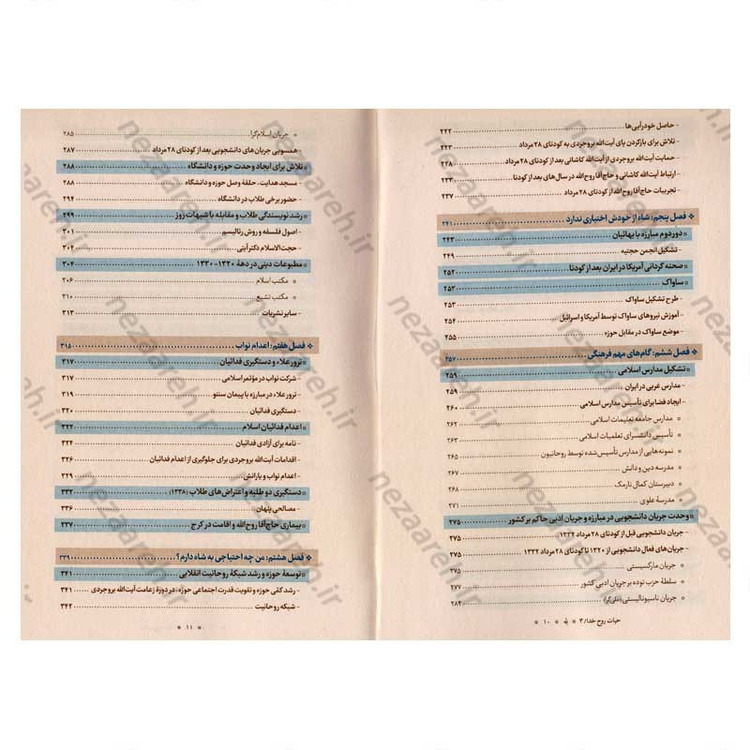 - حاصل خودرأیی‌ها ۲۲۲
- تلاش برای بازکردن پای آیت‌الله بروجردی به کودتای ۲۸ مرداد ۲۲۳
- حمایت آیت‌الله بروجردی از آیت‌الله کاشانی بعد از کودتای ۲۸ مرداد
- ارتباط آیت‌الله کاشانی و حاج‌آقا روح‌الله در سال‌های بعد از کودتا ۲۳۳
- تجربیات حاج‌آقا روح‌الله از کودتای ۲۸ مرداد ۲۳۷
فصل پنجم: شاه از خودش اختیاری ندارد ۲۴۱
دور دوم مبارزه با بهائیان ۲۴۳
- تشکیل انجمن حجتیه ۲۴۹
صحنه گردانی آمریکا در ایران بعد از کودتا ۲۵۲
ساواک ۲۵۳
- طرح تشکیل ساواک ۲۵۳
- آموزش نیروهای ساواک توسط آمریکا و اسرائیل ۲۵۴
- موضع ساواک در مقابل حوزه ۲۵۵
فصل ششم: گام‌های مهم فرهنگی ۲۵۷
تشکیل مدارس اسلامی ۲۵۹
- مدارس غربی در ایران ۲۵۹
- ایجاد فضا برای تأسیس مدارس اسلامی ۲۶۰
مدارس جامعه تعلیمات اسلامی ۲۶۲
تأسیس دانشسرای تعلمیات اسلامی ۲۶۳
نمونه‌هایی از مدارس تأسیس‌شده توسط روحانیون
مدرسه دین و دانش ۲۶۷
دبیرستان کمال نارمک ۲۶۸
مدرسه علوی ۲۷۱
وحدت جریان دانشجویی در مبارزه و جریان ادبی حاکم بر کشور ۲۷۵
- جریان دانشجویی قبل از کودتای ۲۸ مرداد ۱۳۳۲ ۲۷۵
- جریان‌های فعال دانشجویی از ۱۳۲۰ تا کودتای ۲۸ مرداد ۱۳۳۲ ۲۷۵
جریان مارکسیستی ۲۷۵
سلطهٔ حزب توده بر جریان ادبی کشور ۲۷۷
جریان ناسیونالیستی (ملی‌گرا) ۲۸۴
حیات روح خدا/ ۳ ۱۰
جریان اسلام‌گرا ۲۸۵
- همسویی جریان‌های دانشجویی بعد از کودتای ۲۸ مرداد ۲۸۷
تلاش برای ایجاد وحدت حوزه و دانشگاه ۲۸۸
- مسجد هدایت، حلقهٔ وصل حوزه و دانشگاه ۲۸۸
- حضور برخی طلاب در دانشگاه ۲۹۴
رشد نویسندگی طلاب و مقابله با شبهات روز ۲۹۹
- اصول فلسفه و روش رئالیسم ۳۰۱
- حجت‌الاسلام دکتر آیتی ۳۰۲
مطبوعات دینی در دههٔ ۱۳۲۰-۱۳۳۰ ۳۰۴
مکتب اسلام ۳۰۶
مکتب تشیع ۳۱۰
- سایر نشریات ۳۱۳
فصل هفتم: اعدام نواب ۳۱۵
ترور علاء و دستگیری فدائیان ۳۱۷
- شرکت نواب در مؤتمر اسلامی ۳۱۷
- ترور علاء در مبارزه با پیمان سنتو ۳۱۹
- دستگیری فدائیان ۳۲۰
اعدام فدائیان اسلام ۳۲۲
- نامه برای آزادی فدائیان ۳۲۴
- اقدامات آیت‌الله بروجردی برای جلوگیری از اعدام فدائیان ۳۲۶
- اعدام نواب و یارانش ۳۲۹
دستگیری دو طلبه و اعتراض‌های طلاب (۱۳۳۸) ۳۳۲
- مصالحی پنهان ۳۳۶
بیماری حاج‌آقا روح‌الله و اقامت در کرج ۳۳۷
فصل هشتم: من چه احتیاجی به شاه دارم؟ ۳۳۹
توسعهٔ حوزه و رشد شبکهٔ روحانیت انقلابی ۳۴۱
- رشد کمّی حوزه و تقویت قدرت اجتماعی حوزه، در دورهٔ زعامت آیت‌الله بروجردی ۳۴۱
- شبکه روحانیت ۳۴۲
۱۱
nezaareh.ir